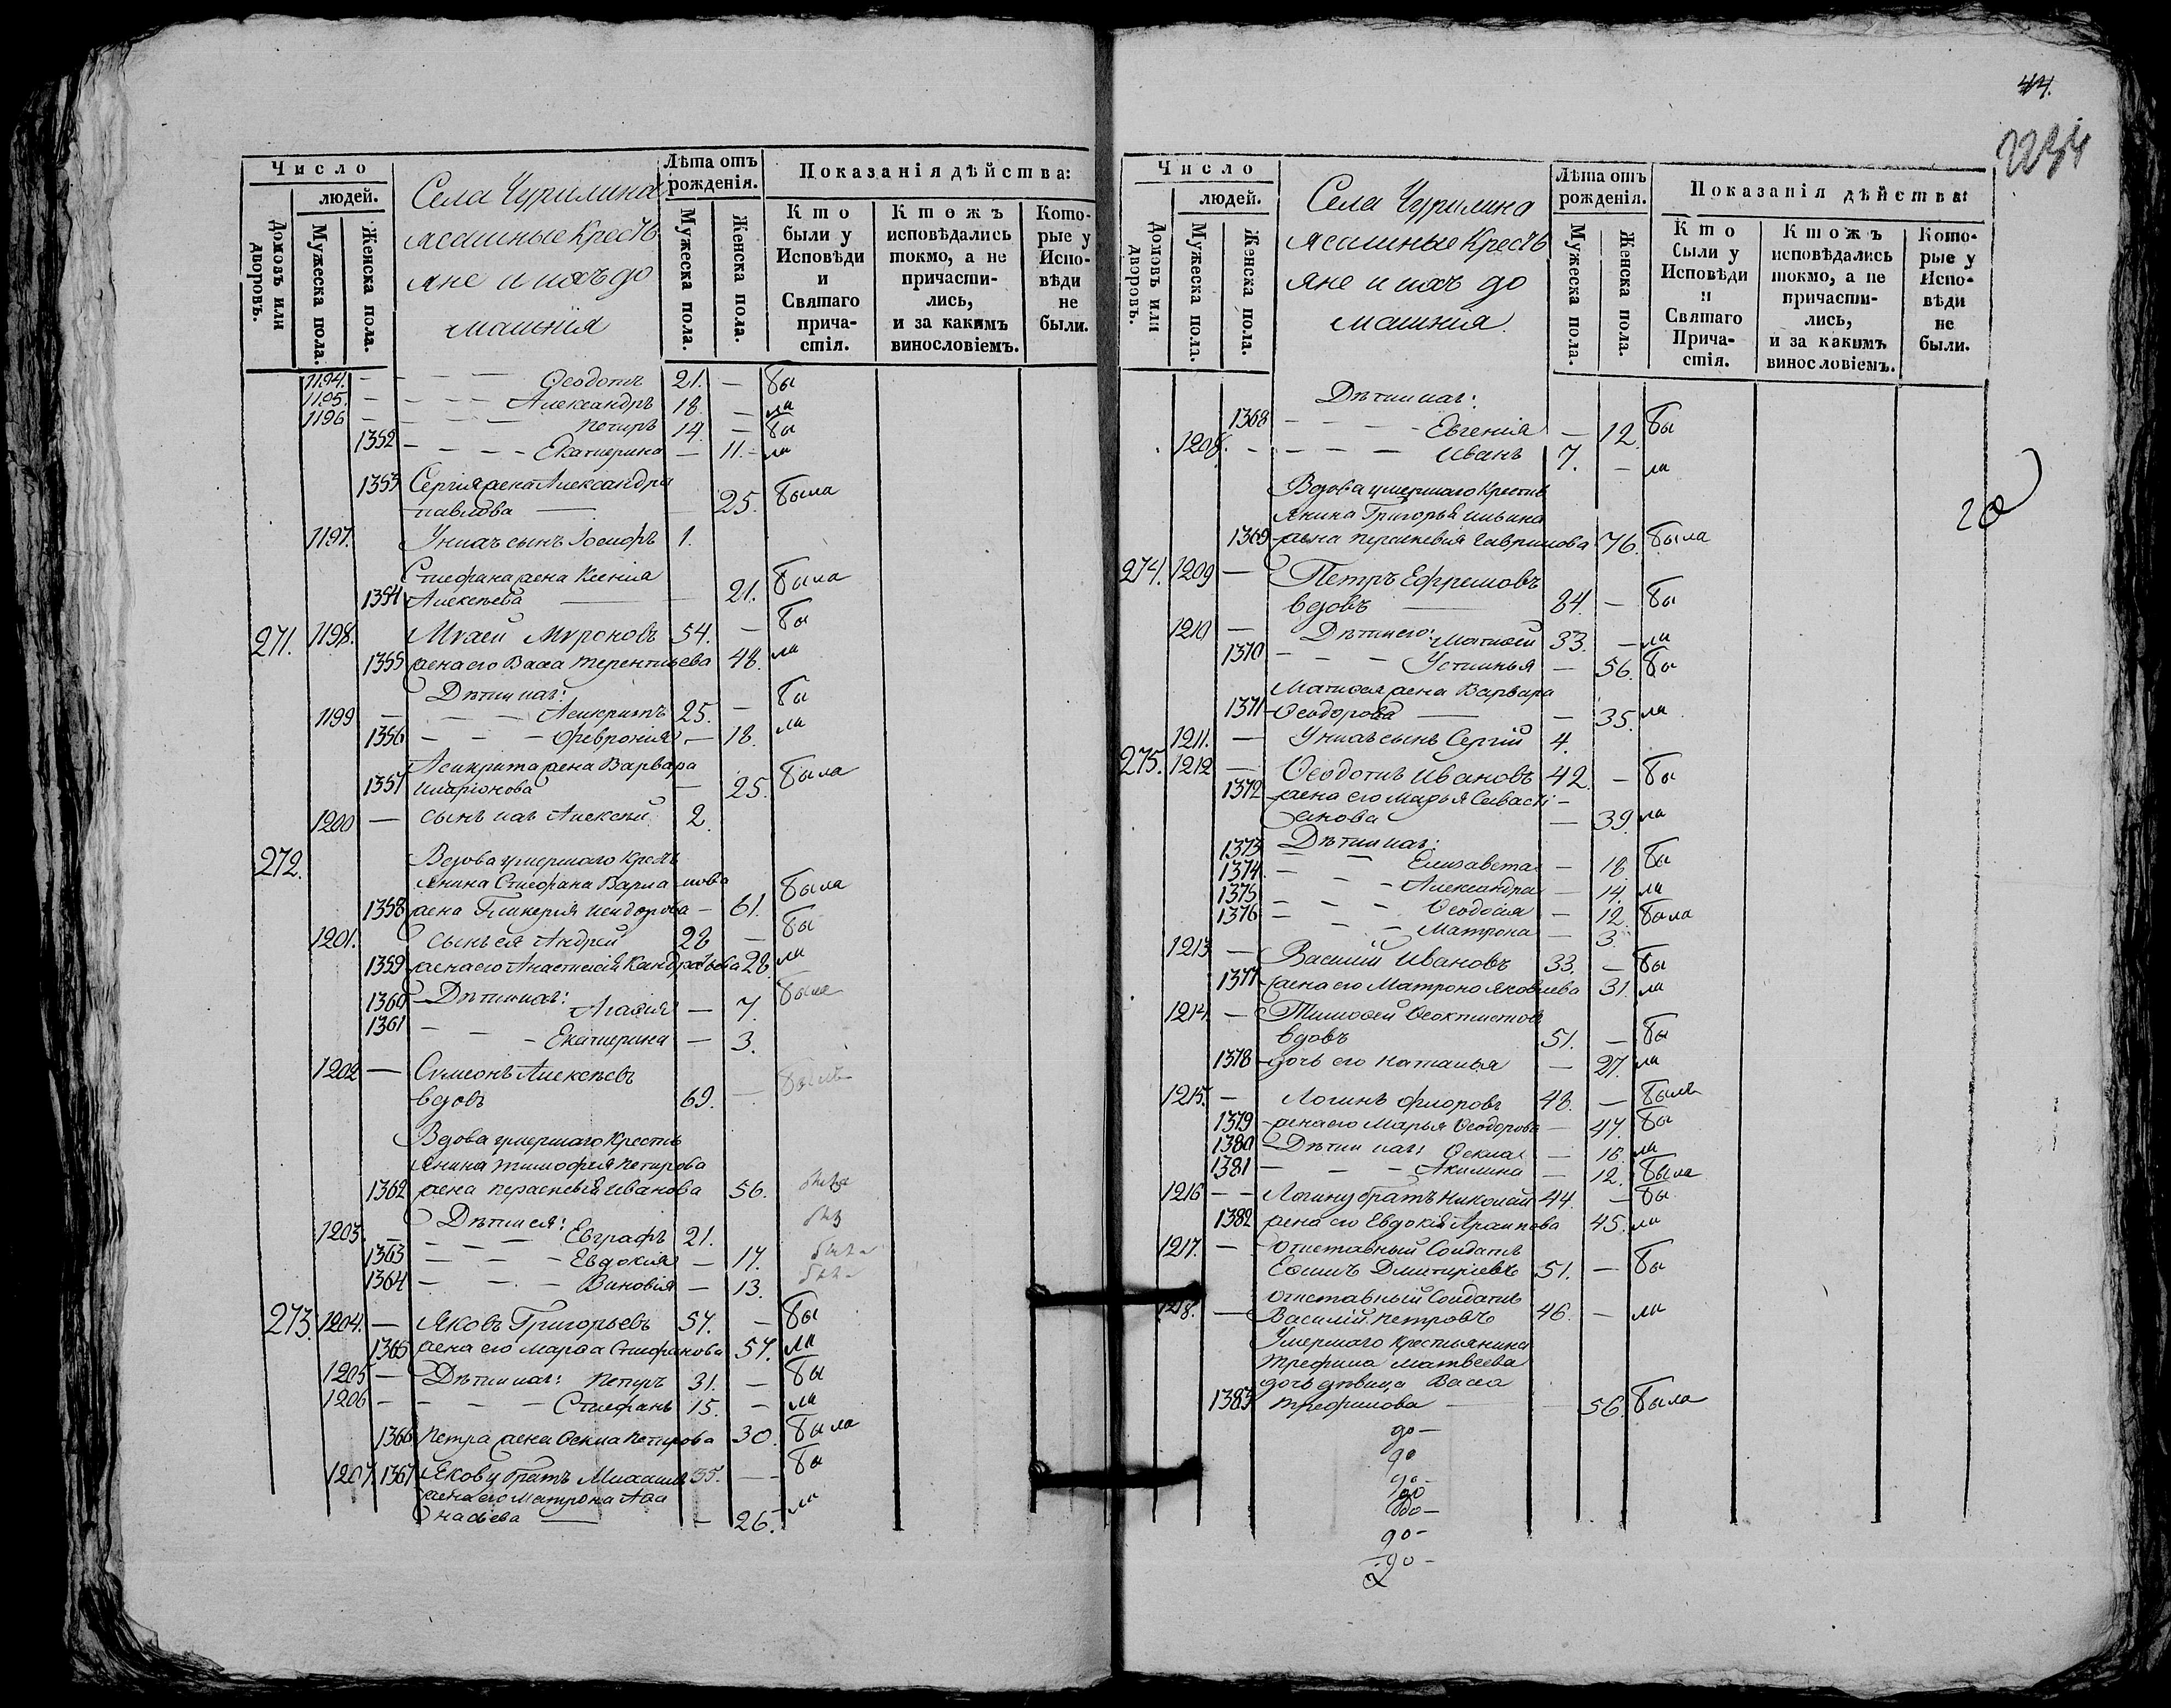 Число
людей.
Домовъ или дворовъ.
Мужеска пола.
Женска пола.
Села Чурилина
ясашные Кресть
яне и ихъ до
машнія
Лѣта отъ рожденія.
Мужеска пола.
Женска пола.
Показанія дѣйства:
Кто были у Исповѣди и Святаго причастія.
Ктожъ исповѣдались токмо, а не причастились, и за какимъ винословіемъ.
Которые у Исповѣди не были.
1194. — Ѳеодотъ 21. — бы
1195. — Александръ 18 — ла
1196 — Петиръ 14. — бы
1352 — Екатерина — 11. ла
1353 Сергія жена Александра
павлова — 25. была
1197. У нихъ сынъ Іосифъ 1.
Стефана жена Ксенія
1354 Алексѣева — 21. была
271. 1198. Мукей Муроновъ 54. — бы
1355 жена его Васса терентьева 48. ла
Дѣти ихъ:
1199 — Асикритъ 25. — бы
1356 — Феврония — 18. ла
Асикрита жена Варвара
1357 иларіонова — 25. была
1200 — сынъ ихъ Алексѣй 2.
272. Вдова умершаго кресть
янина Стефана Варламова
1358 жена Гликерія исидорова — 61. была
1201. сынъ ея Андрей 28 — бы
1359 жена его Анастасія Кандратьева 28. ла
1360 Дѣти ихъ: Агафія — 7. была
1361 — Екатерина — 3.
1202 — Симеонъ Алексѣевъ
вдовъ 69. — былъ
Вдова умершаго крестьь
янина тимофея петрова
1362 жена параскевія иванова 56. была
1203. Дѣти ея: Евграфъ 21. бы
1363 — Евдокія — 17. была
1364 — Зиновія — 13. была
273. 1204. — Яковъ Григорьевъ 57. — бы
1365 жена его марѳа Стефанова 57. ла
1205 — Дѣти ихъ: петиръ 31. — бы
1206 — Стефанъ 15. — ла
1366 петра жена Ѳекла петирова 30. была
1207. 1367 Якову братъ Михаилъ 35. — бы
жена его матрона Аѳа
насьева — 26. ла
44.
2234
Число
людей.
Домовъ или дворовъ.
Мужеска пола.
Женска пола.
Села Чурилина
ясашные Кресть
яне и ихъ до
машнія.
Лѣта отъ рожденія.
Мужеска пола.
Женска пола.
Показанія дѣйства:
Кто были у Исповѣди и Святаго Причастія.
Ктожъ исповѣдались токмо, а не причастились, и за какимъ винословіемъ.
Которые у Исповѣди не были.
Дѣти ихъ:
1368 — Евгенія — 12. бы
1208. — Иванъ 7. — ла
Вдова умершаго Кресть
янина Григорья ильина
1369 жена параскевія гаврилова 76. была
274. 1209 — Петръ Ефремовъ
вдовъ 84. — бы
1210 — Дѣти его: Матвѣй 33. — ла
1370 — Устинья — 56. бы
Матвѣя жена Варвара
1371 Ѳеодорова — 35. ла
1211. — У нихъ сынъ Сергій 4.
275. 1212 — Ѳеодотъ Ивановъ 42. — бы
1372 жена его Марья Севасті-
анова — 39. ла
1373 Дѣти ихъ: Елизавета — 18. бы
1374 — Александра — 14. ла
1375 — Ѳеодосія — 12. была
1376 — Матрона — 3.
1213 — Василій Ивановъ 33. — бы
1377 жена его Матрона яковлева 31. ла
1214. — Тимоѳей Ѳеоктистовъ
вдовъ 51. — бы
1378 дочь его Наталья — 27. ла
1215. — Логинъ флоровъ 48. — былъ
1379 жена его Марья Ѳеодорова — 47. бы
1380 Дѣти ихъ: Ѳекла — 16. ла
1381 — Акилина — 12. была
1216 — Логину братъ Николай 44. — бы
1382 жена его Евдокія Архипова 45. ла
1217. — отставный Солдатъ
Еѳимъ Дмитріевъ 51. — бы
отставный Солдатъ
1218. — Василій петровъ 46. — ла
Умершаго крестьянина
трефила матвеева
дочь дѣвица Васса
1383 трефилова — 56. была